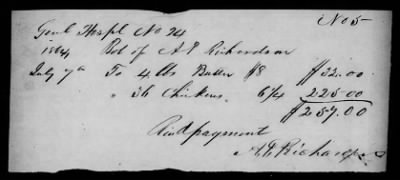 No 5
Genl Hospl No 24
1864 Bot of A. P. Richardson
July 7th To 4 lbs Butter $8 $32.00
" 36 Chickens 6 1/4 225.00
$257.00
Recd payment
A. P. Richardson